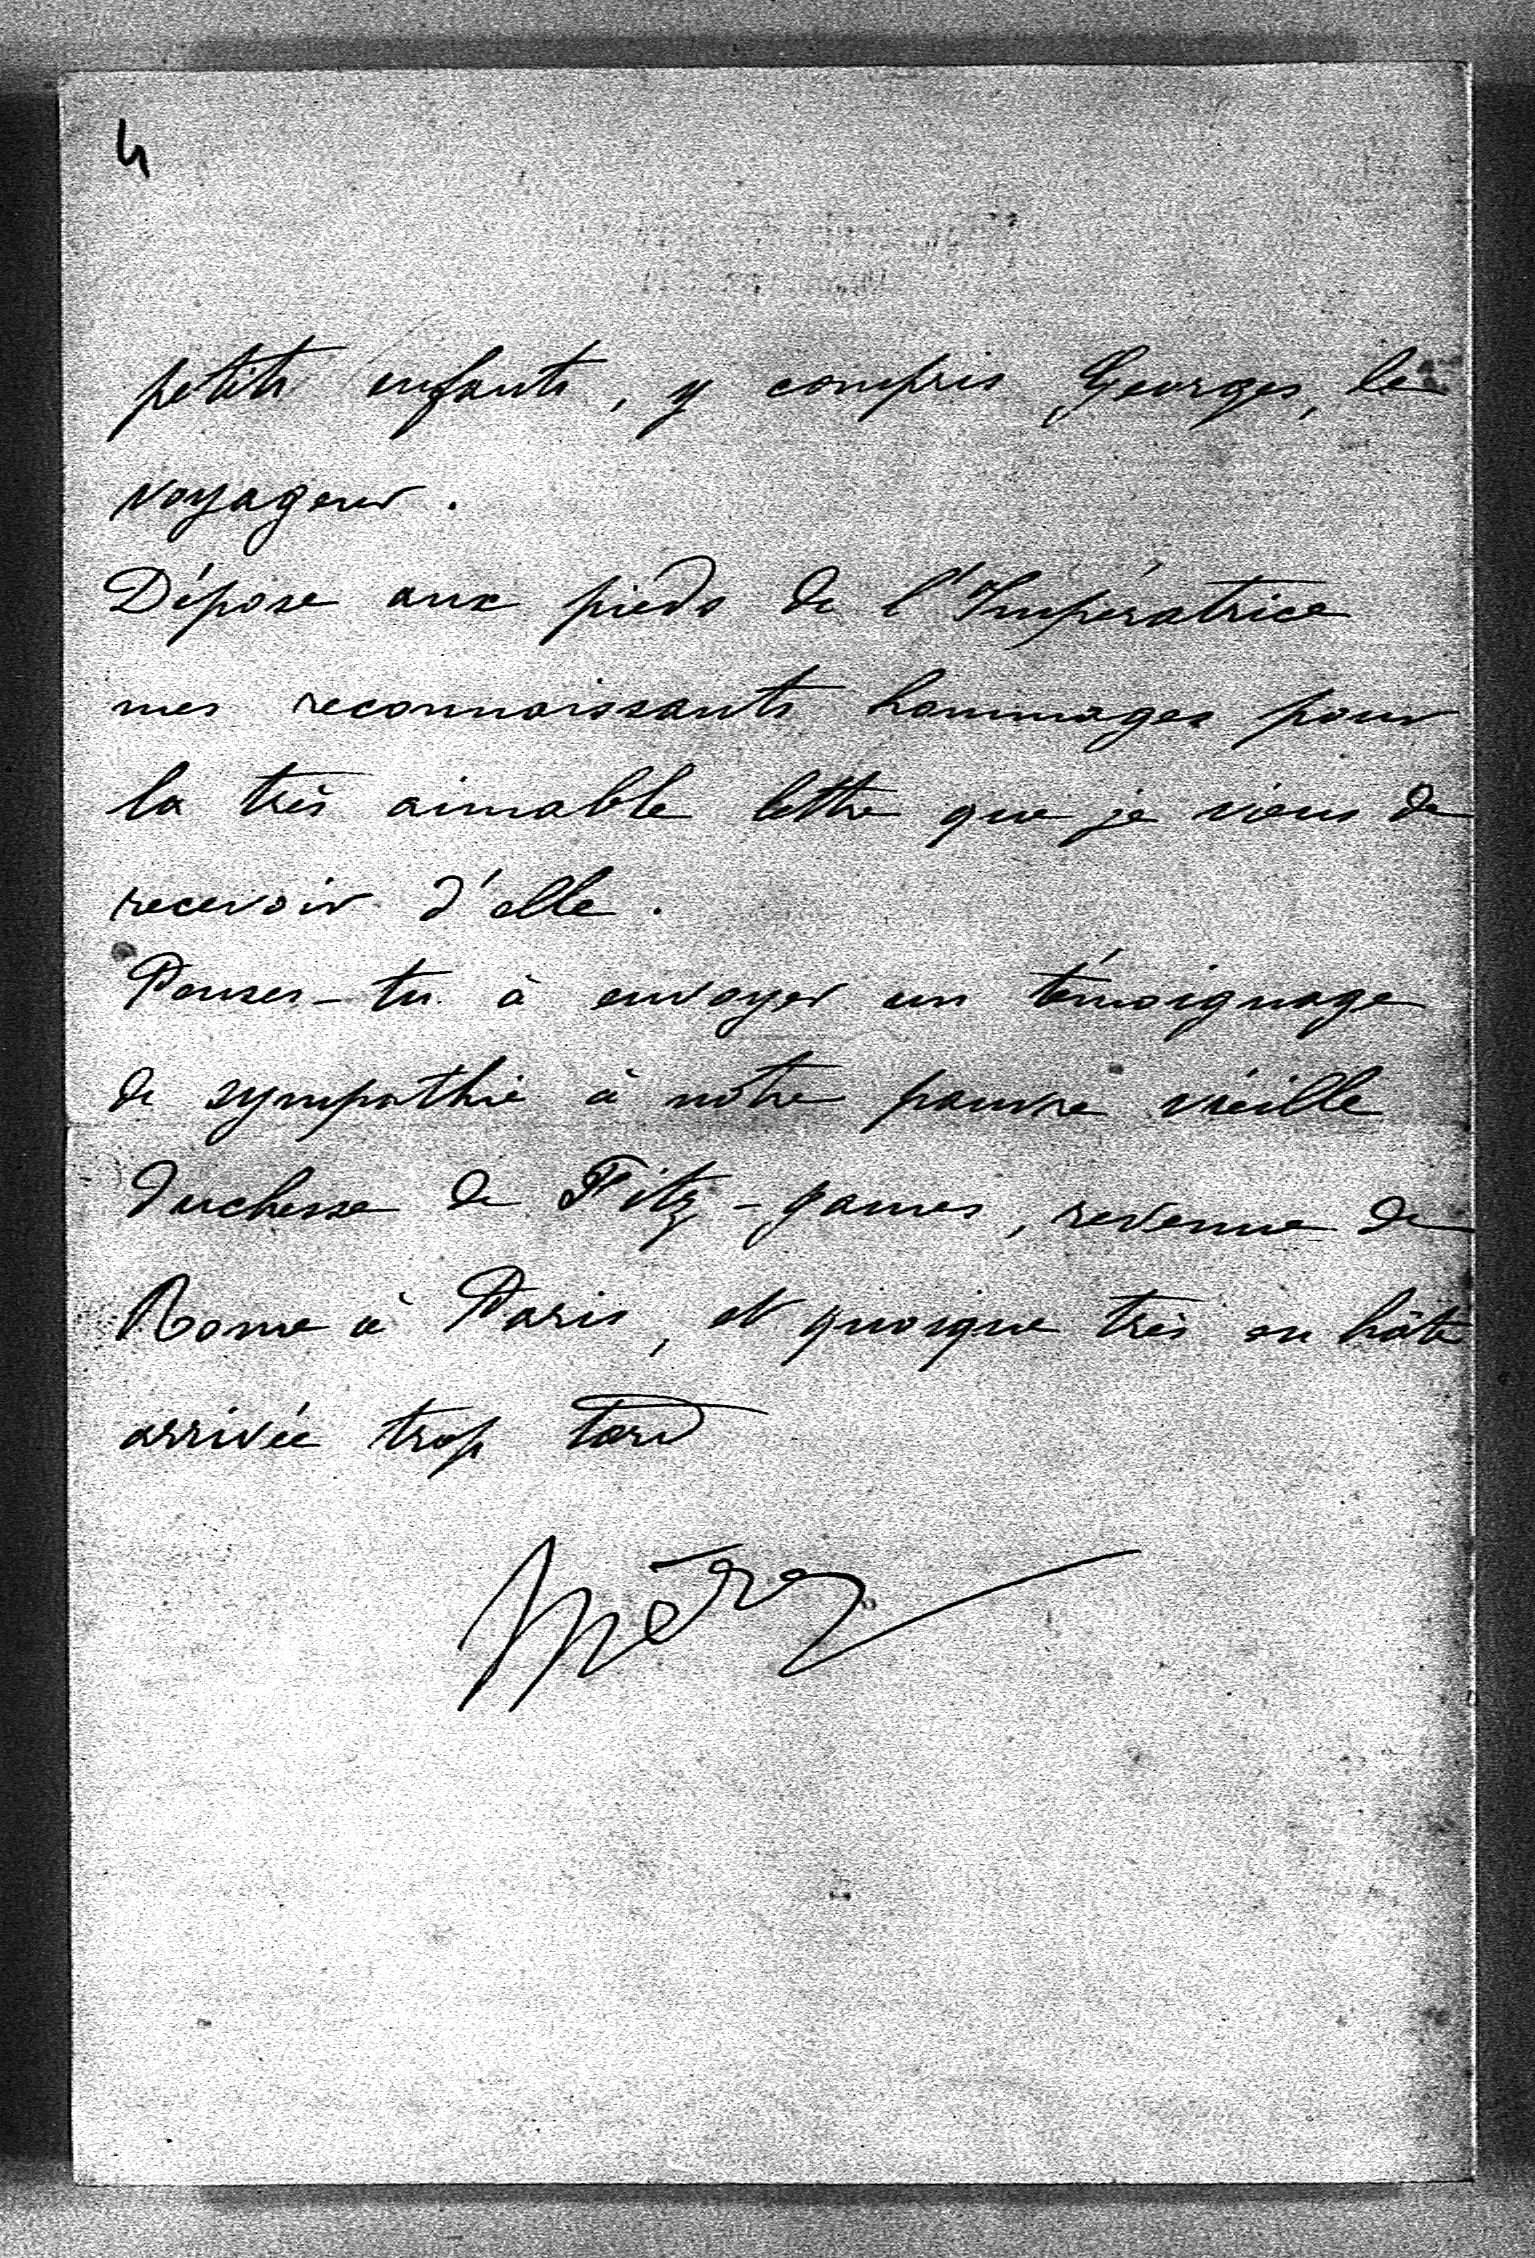 4
petits enfants, y compris Georges, le
voyageur.
Dépose aux pieds de l'Impératrice
mes reconnaissants hommages pour
la très aimable lettre que je viens de
recevoir d'elle.
Penses-tu à envoyer un témoignage
de sympathie à notre pauvre vieille
duchesse de Fitz-James, revenue de
Rome à Paris, et quoique très en hâte
arrivée trop tard